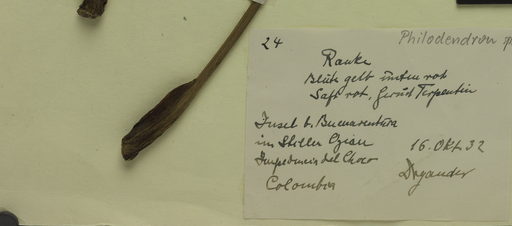 24 Philodendron sp
Ranke
Blüte gelb unten rot
Saft rot, Geruch Terpentin
Insel b. Buenaventura
im Stillen Ozean 16. Okt. 32
del Choco Dryander
Colombia